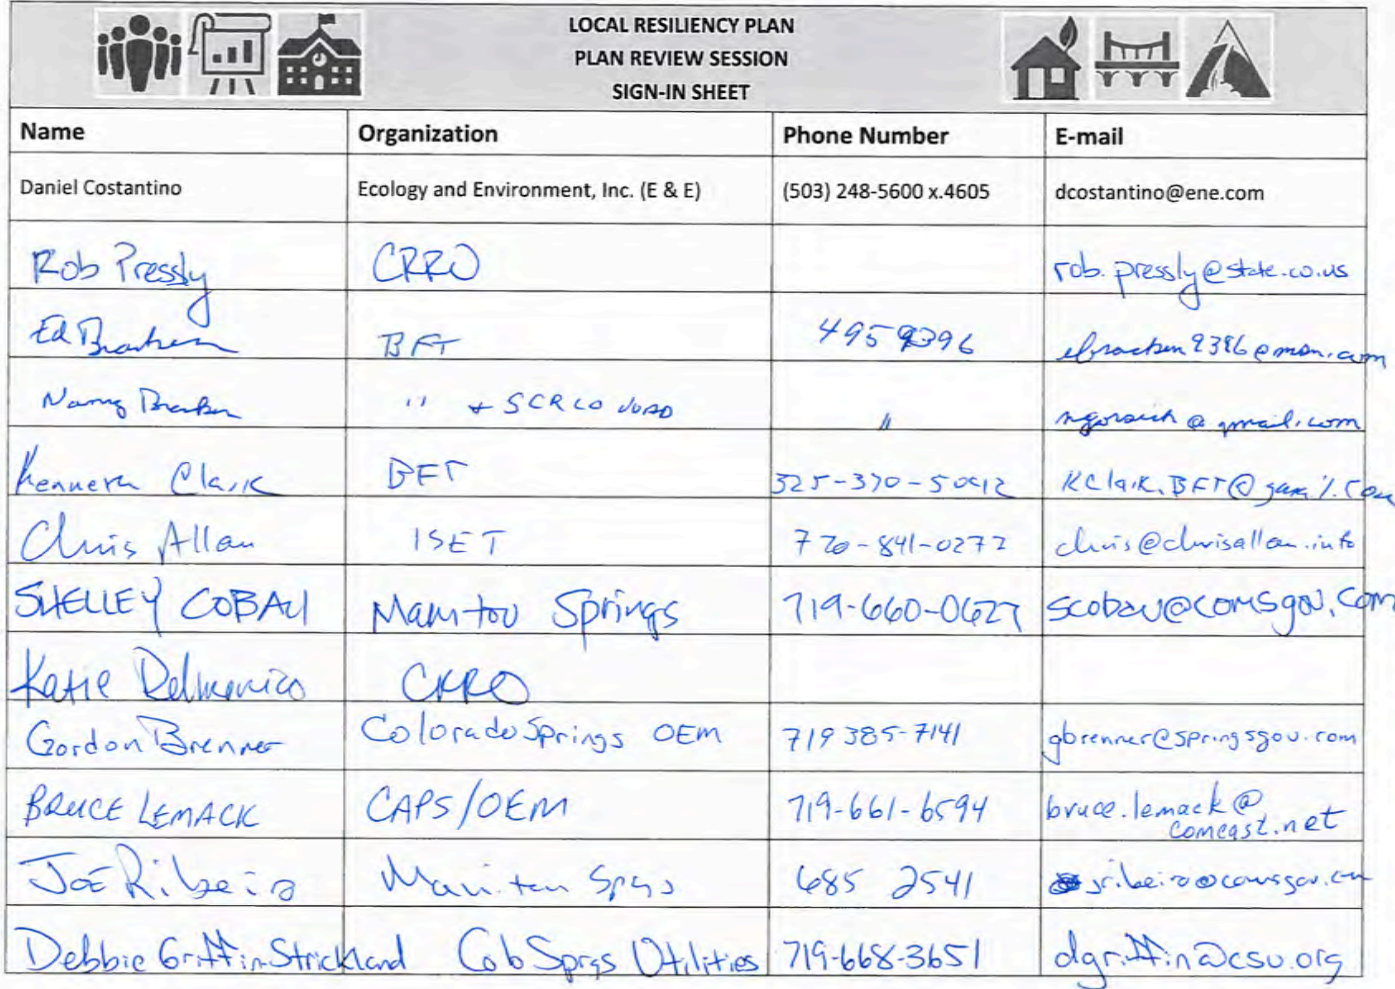 LOCAL RESILIENCY PLAN
PLAN REVIEW SESSION
SIGN-IN SHEET
Name Organization Phone Number E-mail
Daniel Costantino Ecology and Environment, Inc. (E & E) (503) 248-5600 x.4605 dcostantino@ene.com
Rob Pressly CRRO rob.pressly@state.co.us
Ed Bracken BFT 495 9396
Bracken " + "
BFT
Chris Allan ISET 720-841-0272 chris@chrisallan.info
SHELLEY COBAU Manitou Springs 719-660-0627 scobau@comsgov.com
Katie Delmonico CRRO
Gordon Brenner Colorado Springs OEM 719 385-7141 gbrenner@springsgov.com
BRUCE LEMACK CAPS/OEM 719-661-6594 bruce.lemack@
comcast.net
Joe Ribeiro Manitou Spgs 685 2541
Debbie Griffin Strickland Colo Sprgs Utilities 719-668-3651 dgriffin@csu.org